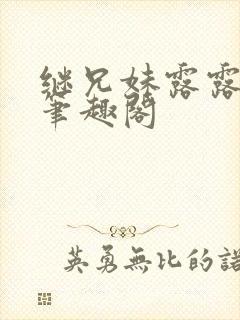 继兄妹露露
筆趣閣
英勇無比的諾